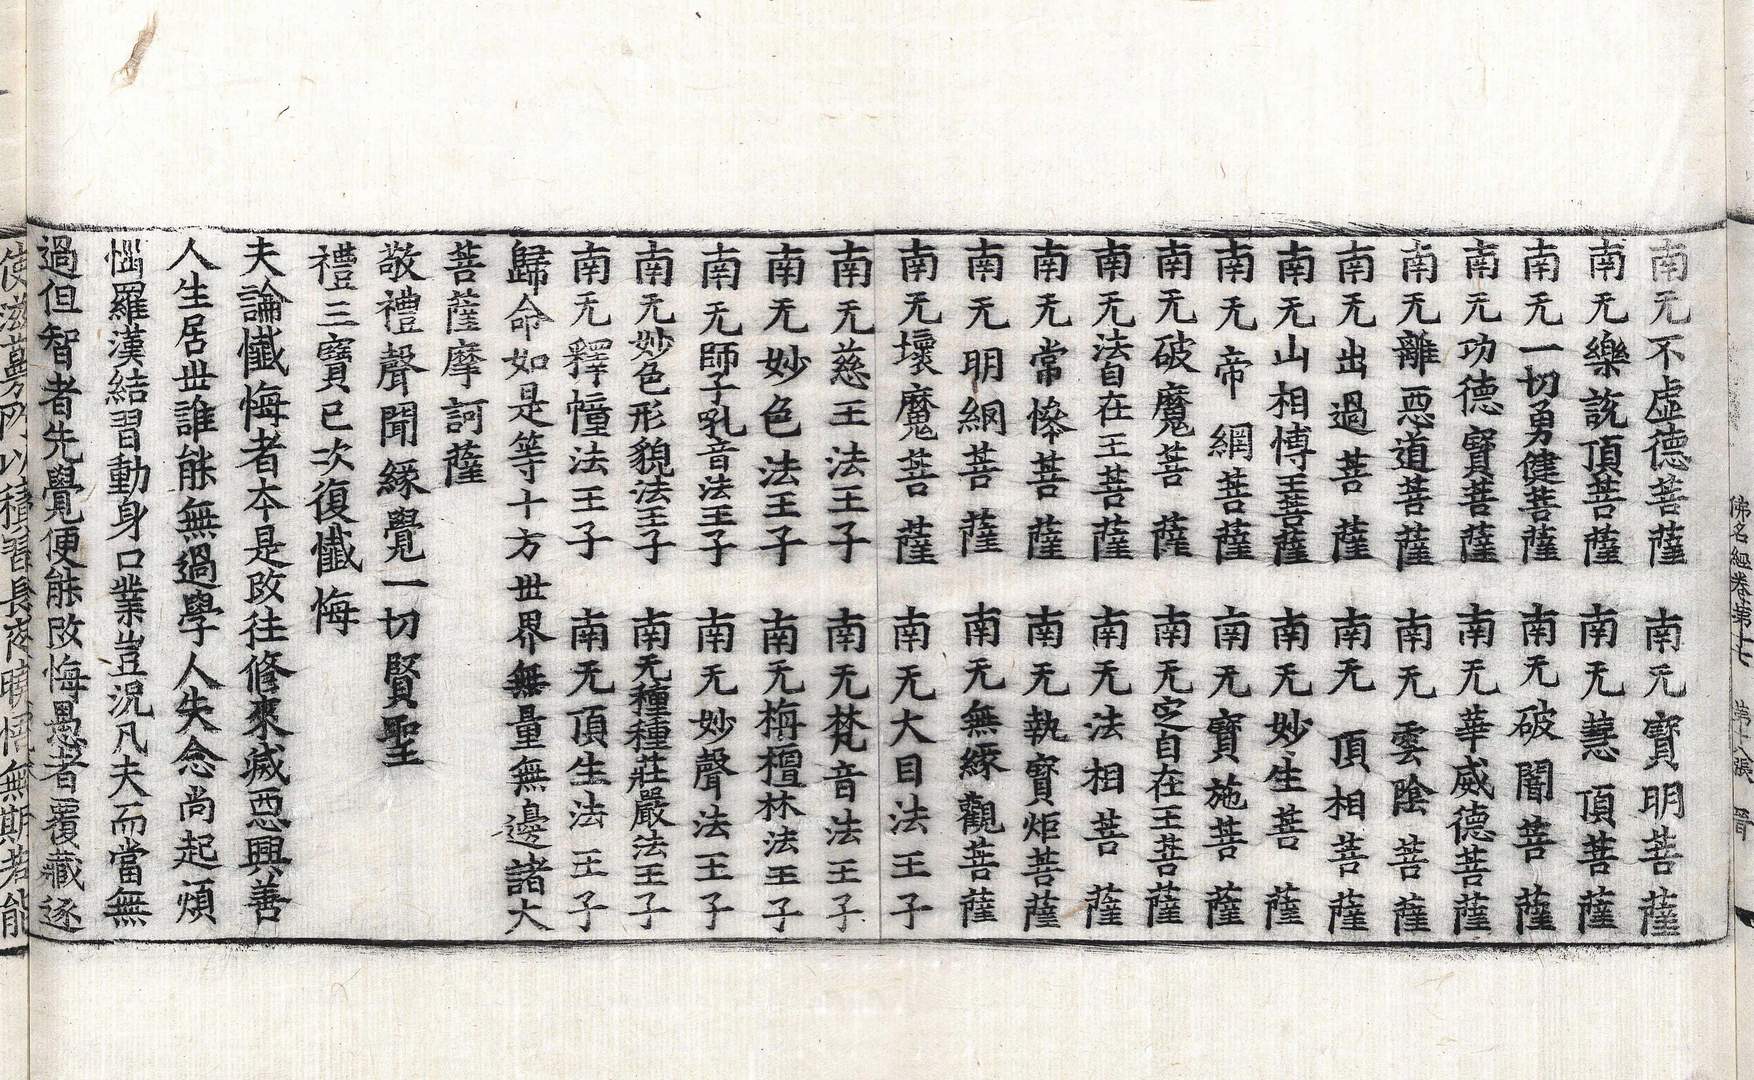 佛名經卷第七 第十八張
南无不虛德菩薩 南无寶明菩薩
南无樂說頂菩薩 南无慧頂菩薩
南无一切勇健菩薩 南无破闇菩薩
南无功德寶菩薩 南无華威德菩薩
南无離惡道菩薩 南无雲陰菩薩
南无出過菩薩 南无頂相菩薩
南无山相博王菩薩 南无妙生菩薩
南无帝網菩薩 南无寶施菩薩
南无破魔菩薩 南无定自在王菩薩
南无法自在王菩薩 南无法相菩薩
南无常慘菩薩 南无執寶炬菩薩
南无明網菩薩 南无無緣觀菩薩
南无壞魔菩薩 南无大目法王子
南无慈王法王子 南无梵音法王子
南无妙色法王子 南无栴檀林法王子
南无師子乳音法王子 南无妙聲法王子
南无妙色形貌法王子 南无種種莊嚴法王子
南无釋幢法王子 南无頂生法王子
歸命如是等十方世界無量無邊諸大
菩薩摩訶薩
敬禮聲聞緣覺一切賢聖
禮三寶已次復懺悔
夫論懺悔者本是改往修來滅惡興善
人生居世誰能無過學人失念尚起煩
惱羅漢結習動身口業豈況凡夫而當無
過但智者先覺便能改悔愚者覆藏逐
使滋蔓所以積習長夜曉悟無期若能